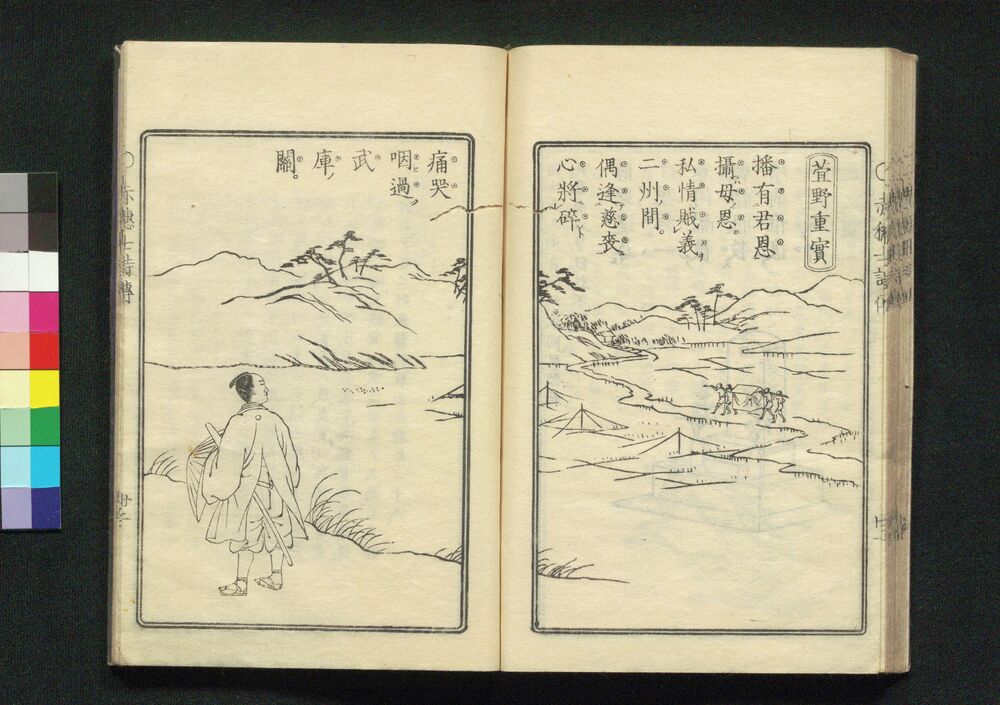 萱野重實
播有君恩
攝母恩。
私情賊義，
二州間。
偶逢慈喪
心將碎
痛哭
咽過，
武
庫，
關。
〇赤穗士詩傳